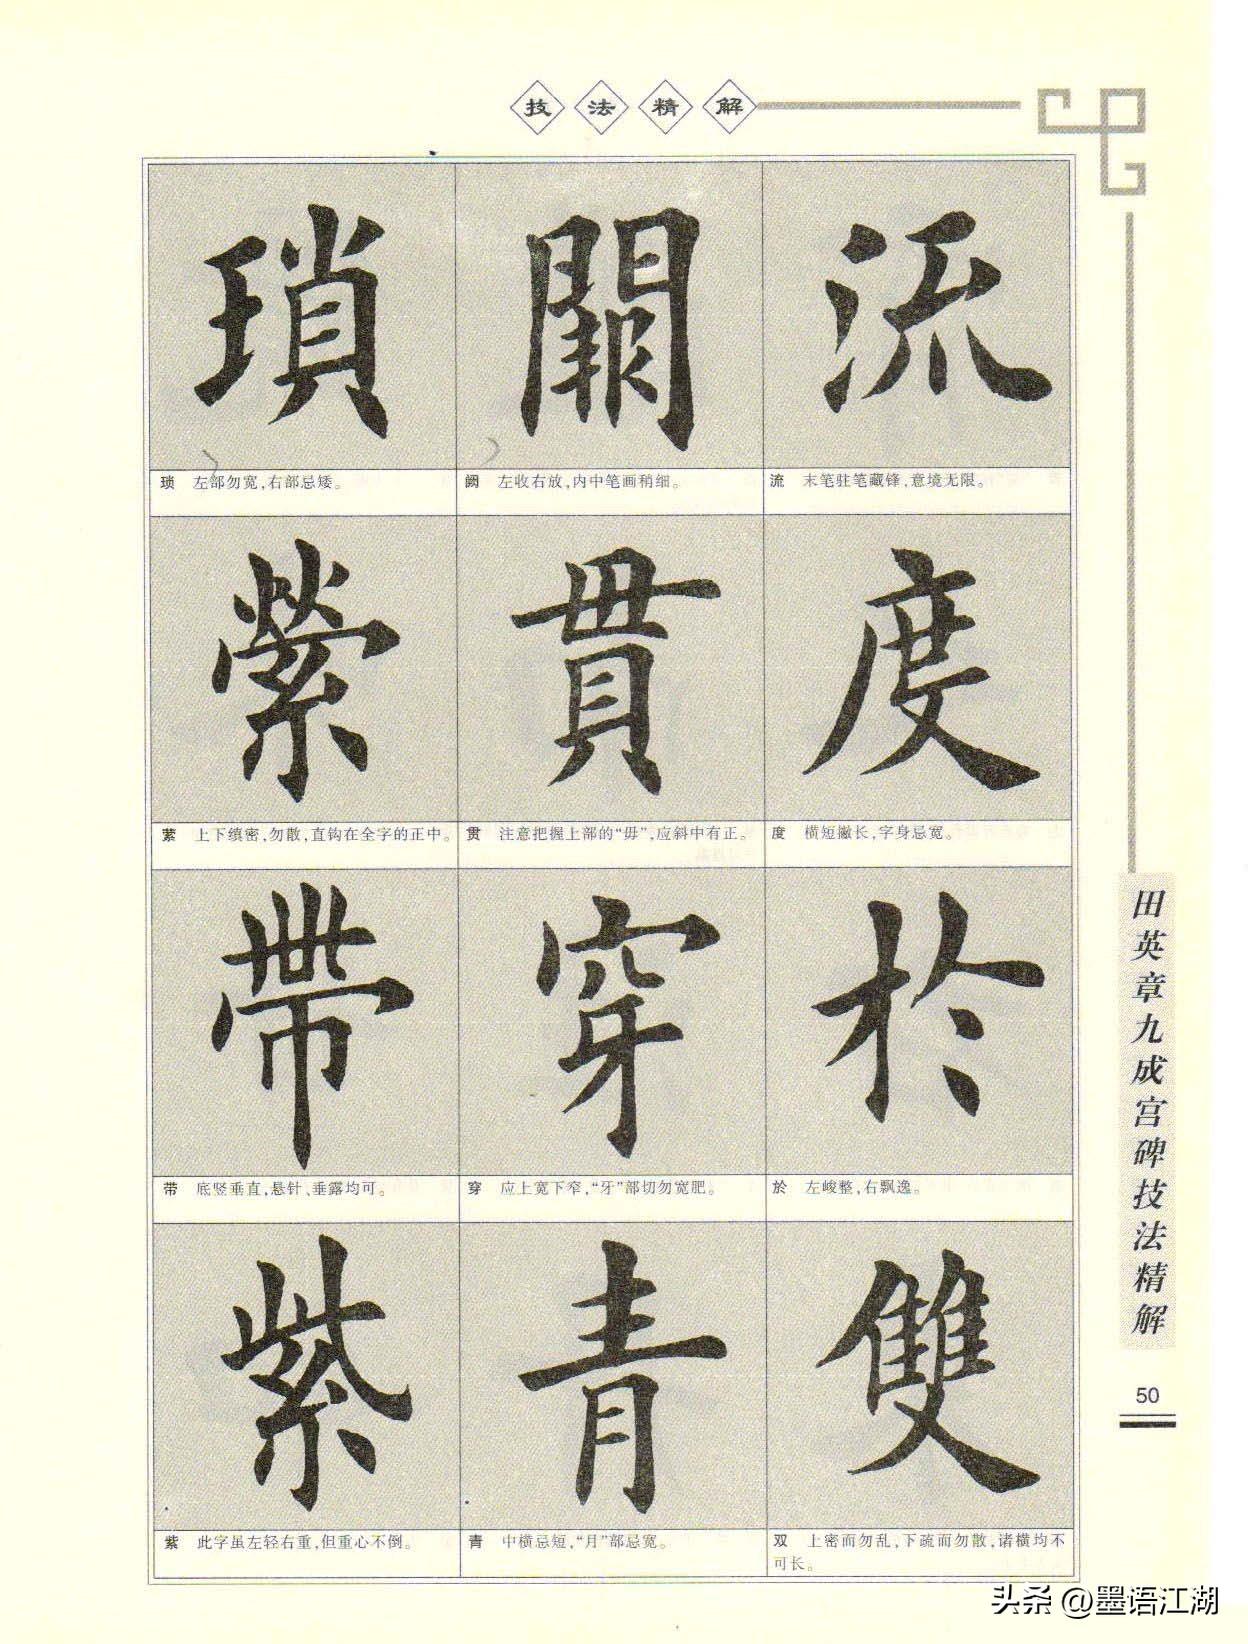 技法精解
瑣
闕
流
琐 左部勿宽，右部忌矮。
阙 左收右放，内中笔画稍细。
流 末笔驻笔藏锋，意境无限。
縈
貫
度
萦 上下缜密，勿散，直钩在全字的正中。
贯 注意把握上部的“毋”，应斜中有正。
度 横短撇长，字身忌宽。
帶
穿
於
带 底竖垂直，悬针、垂露均可。
穿 应上宽下窄，“牙”部切勿宽肥。
於 左峻整，右飘逸。
紫
青
雙
紫 此字虽左轻右重，但重心不倒。
青 中横忌短，“月”部忌宽。
双 上密而勿乱，下疏而勿散，诸横均不
可长。
田英章九成宫碑技法精解
50
头条 @墨语江湖